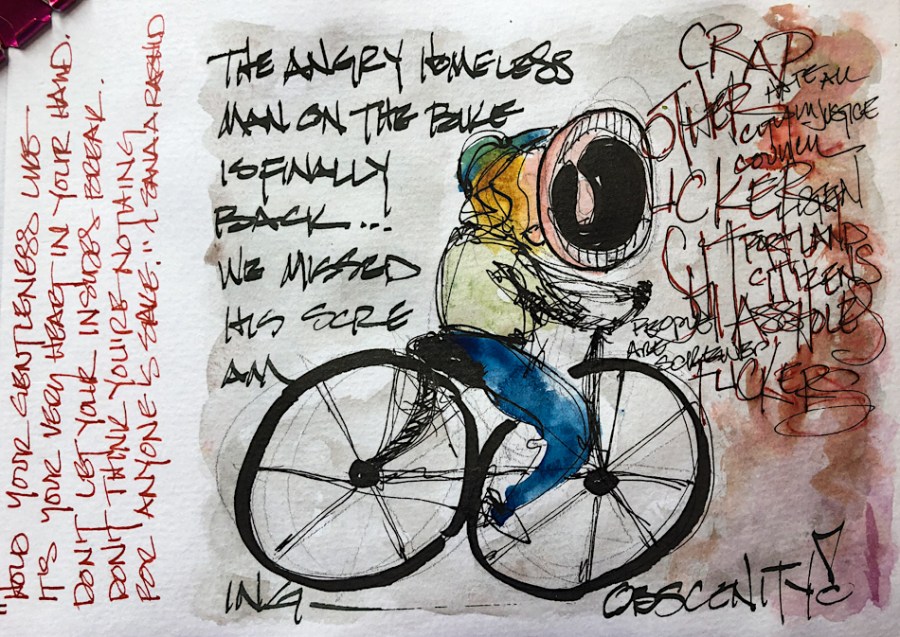 "HOLD YOUR GENTLENESS LIKE
IT'S YOUR VERY HEART IN YOUR HAND.
DON'T LET YOUR INSIDES BREAK.
DON'T THINK YOU'RE NOTHING
FOR ANYONE'S SAKE." SANAA RASHID
THE ANGRY HOMELESS
MAN ON THE BIKE
IS FINALLY
BACK...!
WE MISSED
HIS SCRE
AM
ING
OBSCENITY!
CRAP
HATE ALL
OTHER
INJUSTICE
COUNCIL
UCKER
LISTEN
PORTLAND
CITIZENS
ASSHOLES
PEOPLE
ARE
FUCKERS